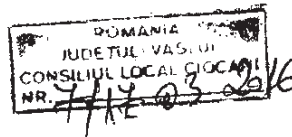 ROMANIA
JUDETUL VASLUI
CONSILIUL LOCAL CIOCANI
NR. 7/17 03 2016